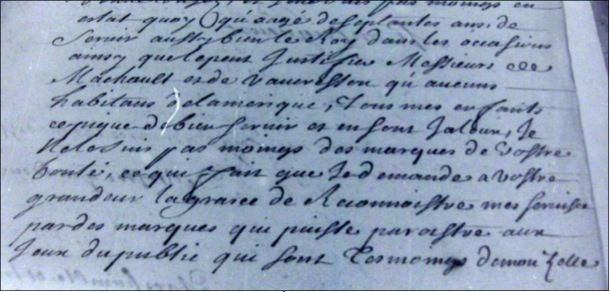 pas momeys en
estat quoy qu'aagé desoptantes ans, de
Servir aussy bien le Roy dans les occasions
ainsy que peut Justifier Messieurs de
Machault et de Vaucresson qu'aucuns
habitans delamerique, Tous mes enfants
cepique de bien servir et en sont Jaloux, Je
Nelesuis pas momeys des marques de Vostre
bonté, ce qui fait que Je demande a vostre
grandeur la grace de Reconnoistre mes services
par des marques qui puisse paroistre aux
yeux dupublic qui sont Tesmoneys demon Zelle